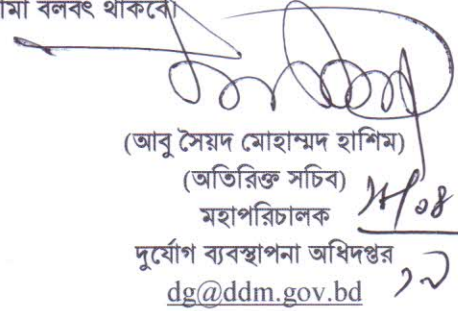 বলবৎ থাকবে।
(আবু সৈয়দ মোহাম্মদ হাশিম)
(অতিরিক্ত সচিব)
মহাপরিচালক
দুর্যোগ ব্যবস্থাপনা অধিদপ্তর
dg@ddm.gov.bd